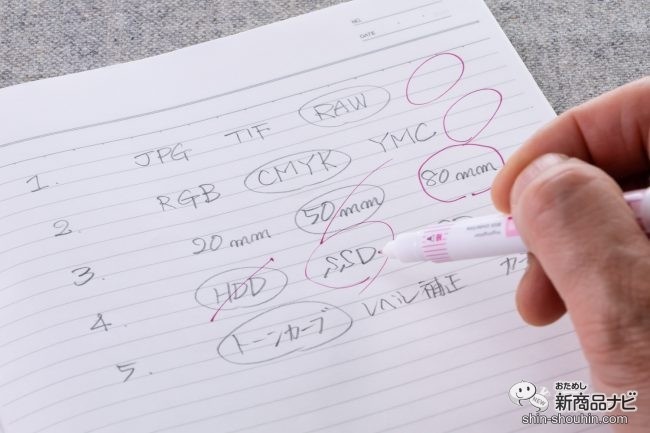 NO.
DATE
1. JPG TIF RAW
2. RGB CMYK YMC
3. 20mm 50mm 80mm
4. HDD SSD
5. トーンカーブ レベル補正
おためし
新商品ナビ
NEW
shin-shouhin.com